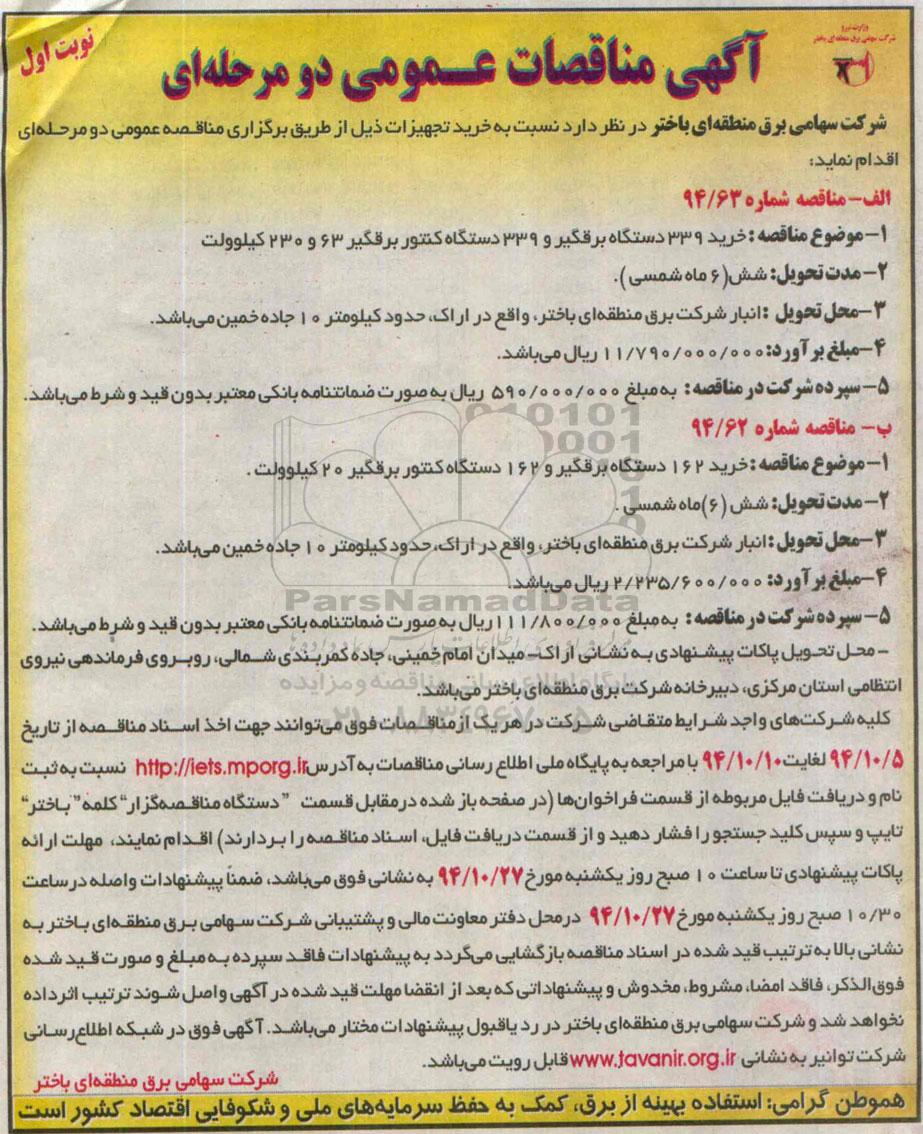 وزارت نیرو
شرکت سهامی برق منطقه‌ای باختر
نوبت اول
آگهی مناقصات عمومی دو مرحله‌ای
شرکت سهامی برق منطقه‌ای باختر در نظر دارد نسبت به خرید تجهیزات ذیل از طریق برگزاری مناقصه عمومی دو مرحله‌ای
اقدام نماید:
الف- مناقصه شماره ۹۴/۶۳
۱- موضوع مناقصه : خرید ۳۳۹ دستگاه برقگیر و ۳۳۹ دستگاه کنتور برقگیر ۶۳ و ۲۳۰ کیلوولت
۲- مدت تحویل: شش( ۶ ماه شمسی ).
۳- محل تحویل : انبار شرکت برق منطقه‌ای باختر، واقع در اراک، حدود کیلومتر ۱۰ جاده خمین می‌باشد.
۴- مبلغ برآورد: ۱۱/۷۹۰/۰۰۰/۰۰۰ ریال می‌باشد.
۵- سپرده شرکت در مناقصه : به مبلغ ۵۹۰/۰۰۰/۰۰۰ ریال به صورت ضمانتنامه بانکی معتبر بدون قید و شرط می‌باشد.
ب- مناقصه شماره ۹۴/۶۲
۱- موضوع مناقصه : خرید ۱۶۲ دستگاه برقگیر و ۱۶۲ دستگاه کنتور برقگیر ۲۰ کیلوولت .
۲- مدت تحویل: شش (۶)ماه شمسی .
۳- محل تحویل : انبار شرکت برق منطقه‌ای باختر، واقع در اراک، حدود کیلومتر ۱۰ جاده خمین می‌باشد.
۴- مبلغ برآورد: ۲/۲۳۵/۶۰۰/۰۰۰ ریال می‌باشد.
ParsNamadData
۵- سپرده شرکت در مناقصه : به مبلغ ۱۱۱/۸۰۰/۰۰۰ ریال به صورت ضمانتنامه بانکی معتبر بدون قید و شرط می‌باشد.
- محل تحویل پاکات پیشنهادی به نشانی اراک- میدان امام خمینی، جاده کمربندی شمالی، روبروی فرماندهی نیروی
پایگاه اطلاع رسانی مناقصه و مزایده
انتظامی استان مرکزی، دبیرخانه شرکت برق منطقه‌ای باختر می‌باشد.
۰۲۱-۸۸۳۴۹۶۷۰-۵
کلیه شرکت‌های واجد شرایط متقاضی شرکت در هر یک از مناقصات فوق می‌توانند جهت اخذ اسناد مناقصه از تاریخ
۹۴/۱۰/۵ لغایت ۹۴/۱۰/۱۰ با مراجعه به پایگاه ملی اطلاع رسانی مناقصات به آدرس http://iets.mporg.ir نسبت به ثبت
نام و دریافت فایل مربوطه از قسمت فراخوان‌ها (در صفحه باز شده در مقابل قسمت ”دستگاه مناقصه‌گزار“ کلمه ”باختر“
تایپ و سپس کلید جستجو را فشار دهید و از قسمت دریافت فایل، اسناد مناقصه را بردارند) اقدام نمایند، مهلت ارائه
پاکات پیشنهادی تا ساعت ۱۰ صبح روز یکشنبه مورخ ۹۴/۱۰/۲۷ به نشانی فوق می‌باشد، ضمناً پیشنهادات واصله در ساعت
۱۰/۳۰ صبح روز یکشنبه مورخ ۹۴/۱۰/۲۷ در محل دفتر معاونت مالی و پشتیبانی شرکت سهامی برق منطقه‌ای باختر به
نشانی بالا به ترتیب قید شده در اسناد مناقصه بازگشایی می‌گردد به پیشنهادات فاقد سپرده به مبلغ و صورت قید شده
فوق‌الذکر، فاقد امضا، مشروط، مخدوش و پیشنهاداتی که بعد از انقضا مهلت قید شده در آگهی واصل شوند ترتیب اثر داده
نخواهد شد و شرکت سهامی برق منطقه‌ای باختر در رد یا قبول پیشنهادات مختار می‌باشد. آگهی فوق در شبکه اطلاع‌رسانی
شرکت توانیر به نشانی www.tavanir.org.ir قابل رویت می‌باشد.
شرکت سهامی برق منطقه‌ای باختر
هموطن گرامی: استفاده بهینه از برق، کمک به حفظ سرمایه‌های ملی و شکوفایی اقتصاد کشور است